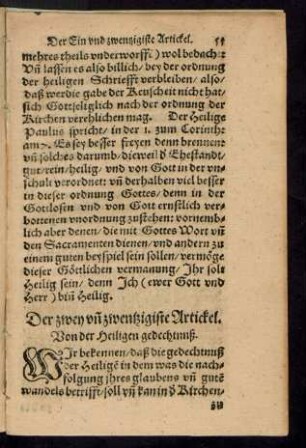 Der Ein vnd zwentzigiste Artickel. 55
mehres theils vnderworff⁊) wol bedacht:
Vñ lassen es also billich / bey der ordnung
der heiligen Schriefft verbleiben / also /
daß werdie gabe der Keuscheit nicht hat /
sich Gottseliglich nach der ordnung der
Kirchen verehlichen mag. Der Heilige
Paulus spricht / in der 1. zum Corinth:
am 7. Es sey besser freyen denn brennen:
vñ solches darumb / dieweil ď Ehestandt /
gut / rein / heilig / vnd von Gott in der vn-
schult verordnet: vñ derhalben viel besser
in dieser ordnung Gottes / denn in der
Gottlosen vnd von Gott ernstlich ver-
bottenen vnordnung zustehen: vornemb-
lich aber denen / die mit Gottes Wort vñ
den Sacramenten dienen / vnd andern zu
einem guten beyspiel sein sollen / vermöge
dieser Göttlichen vermanung / Ihr solt
Heilig sein / denn Ich (ewer Gott vnd
Herr) biñ Heilig.
Der zwey vñ zwentzigiste Artickel.
Von der Heiligen gedechtnuß.
WIr bekennen / daß die gedechtnuß
der Heiligē in dem was die nach-
folgung jhres glaubens vñ gutē
wandels betrifft / soll vñ kan in ď Kirchen /